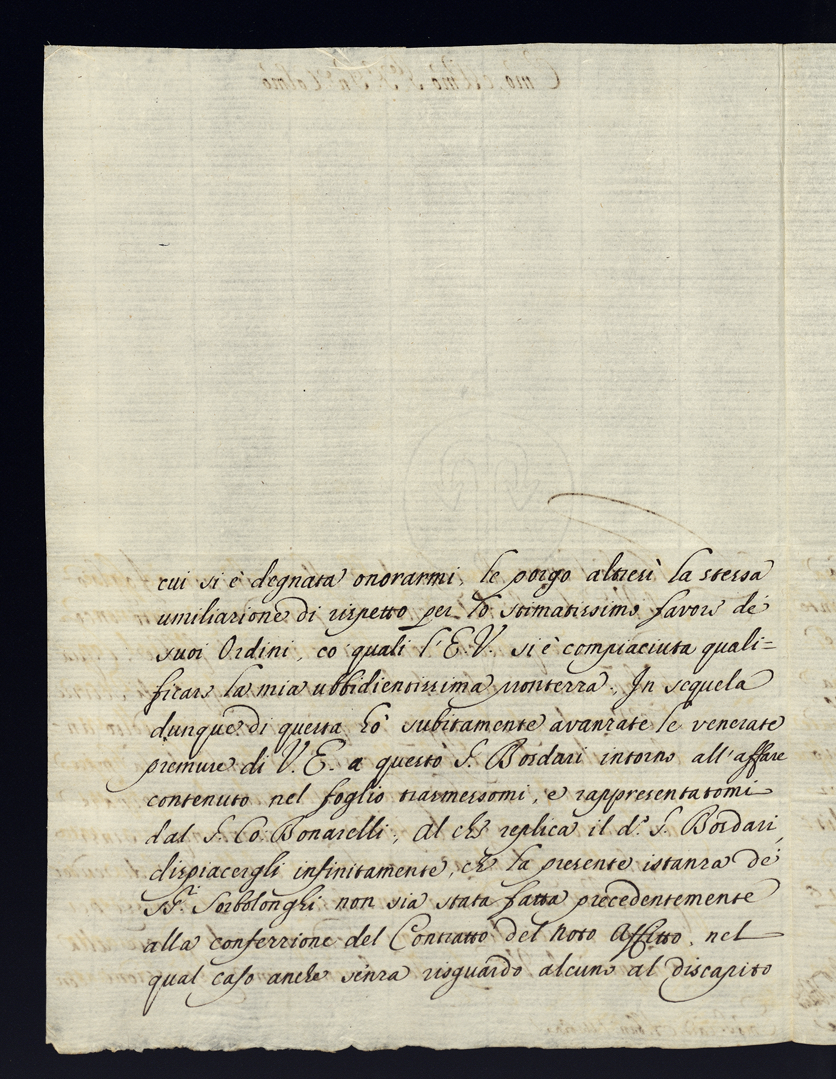 cui si è degnata onorarmi, le porgo altresì la stessa
umiliazione di rispetto per lo stimatissimo favore de'
suoi Ordini, co quali l'E.V. si è compiaciuta quali=
ficare la mia ubbidientissima prontezza. In sequela
dunque di questa hò subitamente avanzate le venerate
premure di V.E. a questo S. Bordari intorno all'affare
contenuto nel foglio trasmessomi, e rappresentatomi
dal S. Co: Bonarelli, Al che replica il d.º S. Bordari,
dispiacergli infinitamente, che la presente istanza de'
SS.ri Sorbolonghi non sia stata fatta precedentemente
alla confezzione del Contratto del noto Affitto, nel
qual caso anche senza risguardo alcuno al discapito